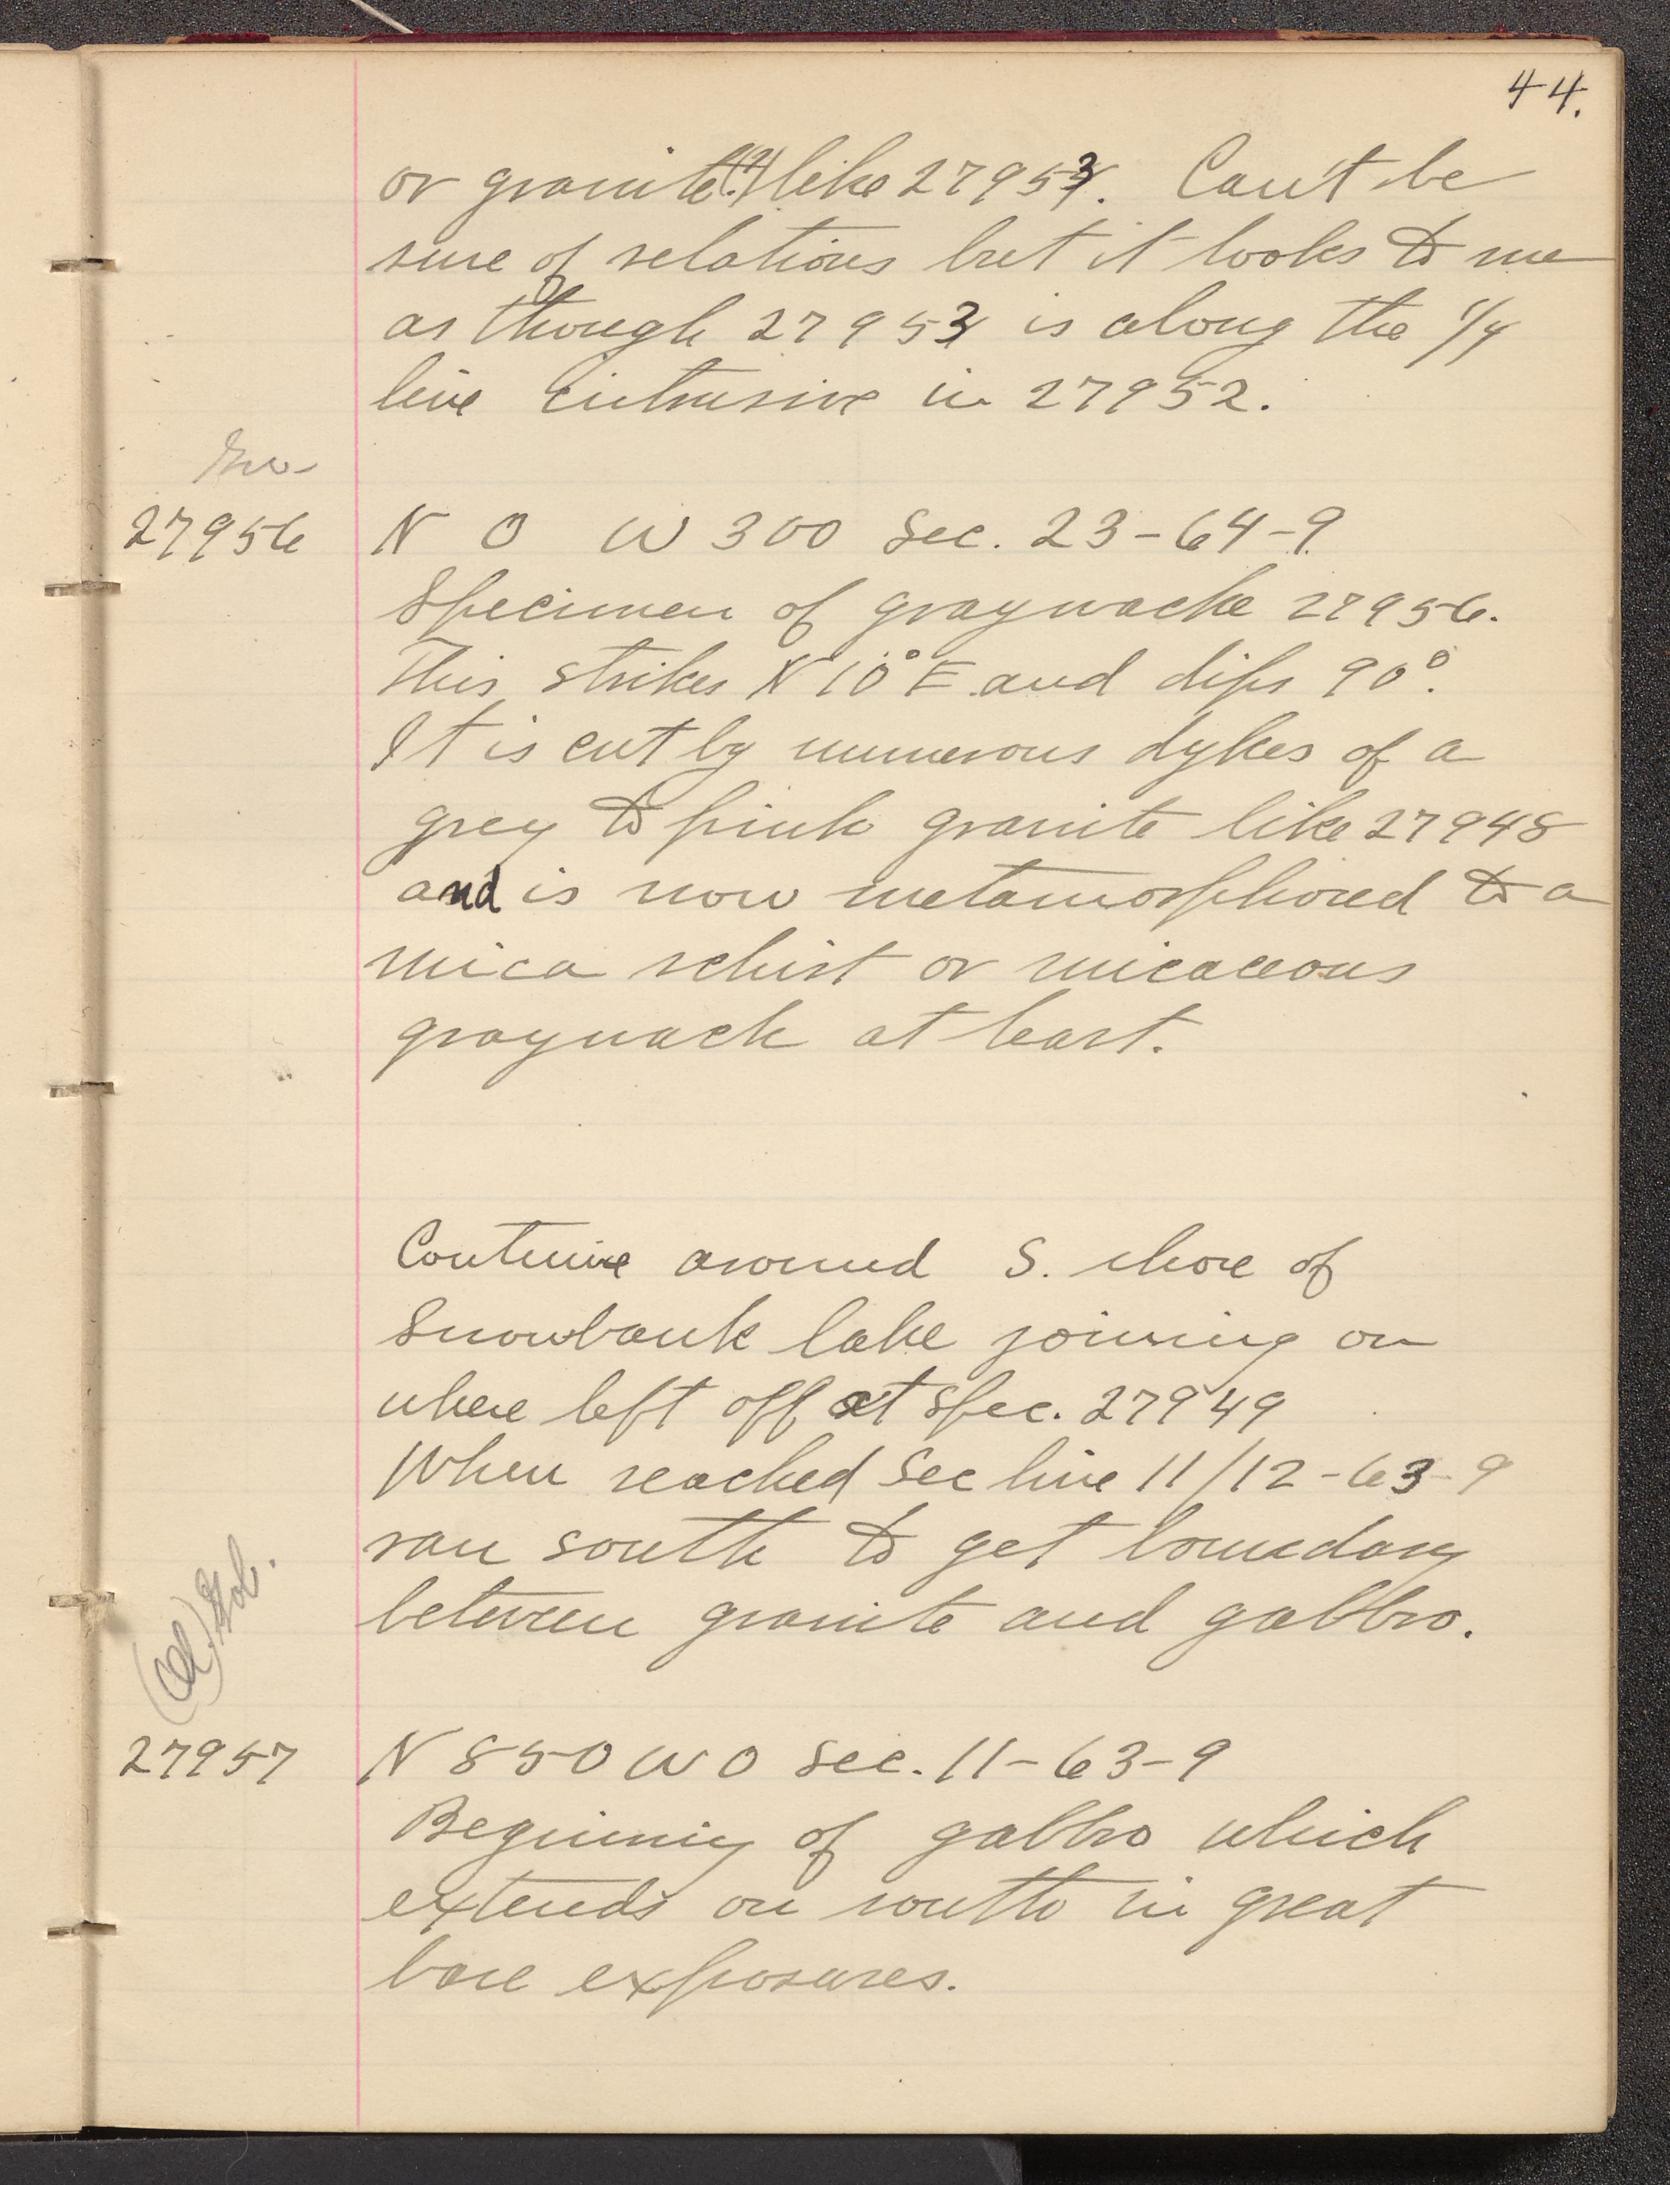 44.
or granite (?) like 27953. Can't be
sure of relations but it looks to me
as though 27953 is along the 1/4
line intrusive in 27952.
27956 N 0 W 300 Sec. 23-64-9
Specimen of graywacke 27956.
This strikes N 10° E and dips 90°.
It is cut by numerous dykes of a
grey to pink granite like 27948
and is now metamorphosed to a
mica schist or micaceous
graywack at least.
Continue around S. shore of
Snowbank lake joining on
where left off at Spec. 27949
When reached Sec line 11/12-63-9
ran south to get boundary
between granite and gabbro.
27957 N 850 W 0 Sec. 11-63-9
Beginning of gabbro which
extends on south in great
bare exposures.